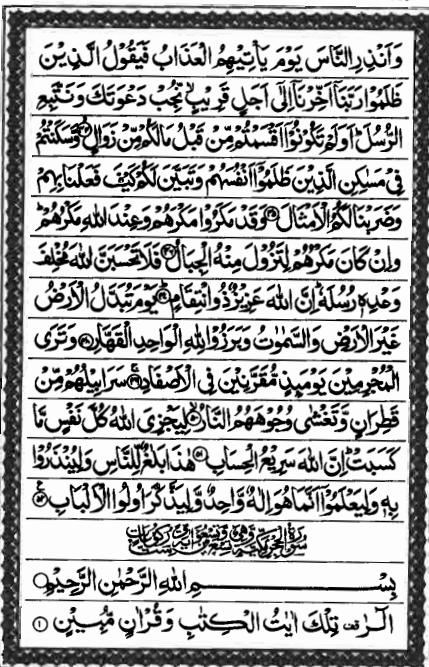 وَاَنْذِرِ النَّاسَ يَوْمَ يَاْتِيْهِمُ الْعَذَابُ فَيَقُوْلُ الَّذِيْنَ
ظَلَمُوْا رَبَّنَاۤ اَخِّرْنَاۤ اِلٰۤى اَجَلٍ قَرِيْبٍۙ نُّجِبْ دَعْوَتَكَ وَنَتَّبِعِ
الرُّسُلَؕ اَوَلَمْ تَكُوْنُوْۤا اَقْسَمْتُمْ مِّنْ قَبْلُ مَا لَكُمْ مِّنْ زَوَالٍۙ۴۴ وَّسَكَنْتُمْ
فِيْ مَسٰكِنِ الَّذِيْنَ ظَلَمُوْۤا اَنْفُسَهُمْ وَتَبَيَّنَ لَكُمْ كَيْفَ فَعَلْنَا بِهِمْ
وَضَرَبْنَا لَكُمُ الْاَمْثَالَ۴۵ وَقَدْ مَكَرُوْا مَكْرَهُمْ وَعِنْدَ اللّٰهِ مَكْرُهُمْؕ
وَاِنْ كَانَ مَكْرُهُمْ لِتَزُوْلَ مِنْهُ الْجِبَالُ۴۶ فَلَا تَحْسَبَنَّ اللّٰهَ مُخْلِفَ
وَعْدِهٖ رُسُلَهٗؕ اِنَّ اللّٰهَ عَزِيْزٌ ذُو انْتِقَامٍؕ۴۷ يَوْمَ تُبَدَّلُ الْاَرْضُ
غَيْرَ الْاَرْضِ وَالسَّمٰوٰتُ وَبَرَزُوْا لِلّٰهِ الْوَاحِدِ الْقَهَّارِ۴۸ وَتَرَى
الْمُجْرِمِيْنَ يَوْمَىِٕذٍ مُّقَرَّنِيْنَ فِي الْاَصْفَادِۚ۴۹ سَرَابِيْلُهُمْ مِّنْ
قَطِرَانٍ وَّتَغْشٰى وُجُوْهَهُمُ النَّارُۙ۵۰ لِيَجْزِيَ اللّٰهُ كُلَّ نَفْسٍ مَّا
كَسَبَتْؕ اِنَّ اللّٰهَ سَرِيْعُ الْحِسَابِ۵۱ هٰذَا بَلٰغٌ لِّلنَّاسِ وَلِيُنْذَرُوْا
بِهٖ وَلِيَعْلَمُوْۤا اَنَّمَا هُوَ اِلٰهٌ وَّاحِدٌ وَّلِيَذَّكَّرَ اُولُوا الْاَلْبَابِ۵۲
سُوْرَةُ الْحِجْرِ مَكِّيَّةٌ وَّهِيَ تِسْعٌ وَّتِسْعُوْنَ اٰيَةً
بِسْمِ اللّٰهِ الرَّحْمٰنِ الرَّحِيْمِ
الٓرٰ ۫ تِلْكَ اٰيٰتُ الْكِتٰبِ وَقُرْاٰنٍ مُّبِيْنٍ۱